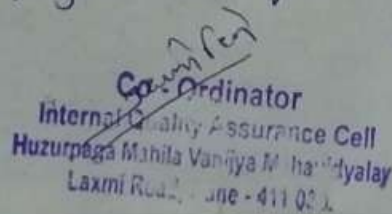 Co-Ordinator
Internal Quality Assurance Cell
Huzurpaga Mahila Vanijya Mahavidyalay
Laxmi Road, - 411 03